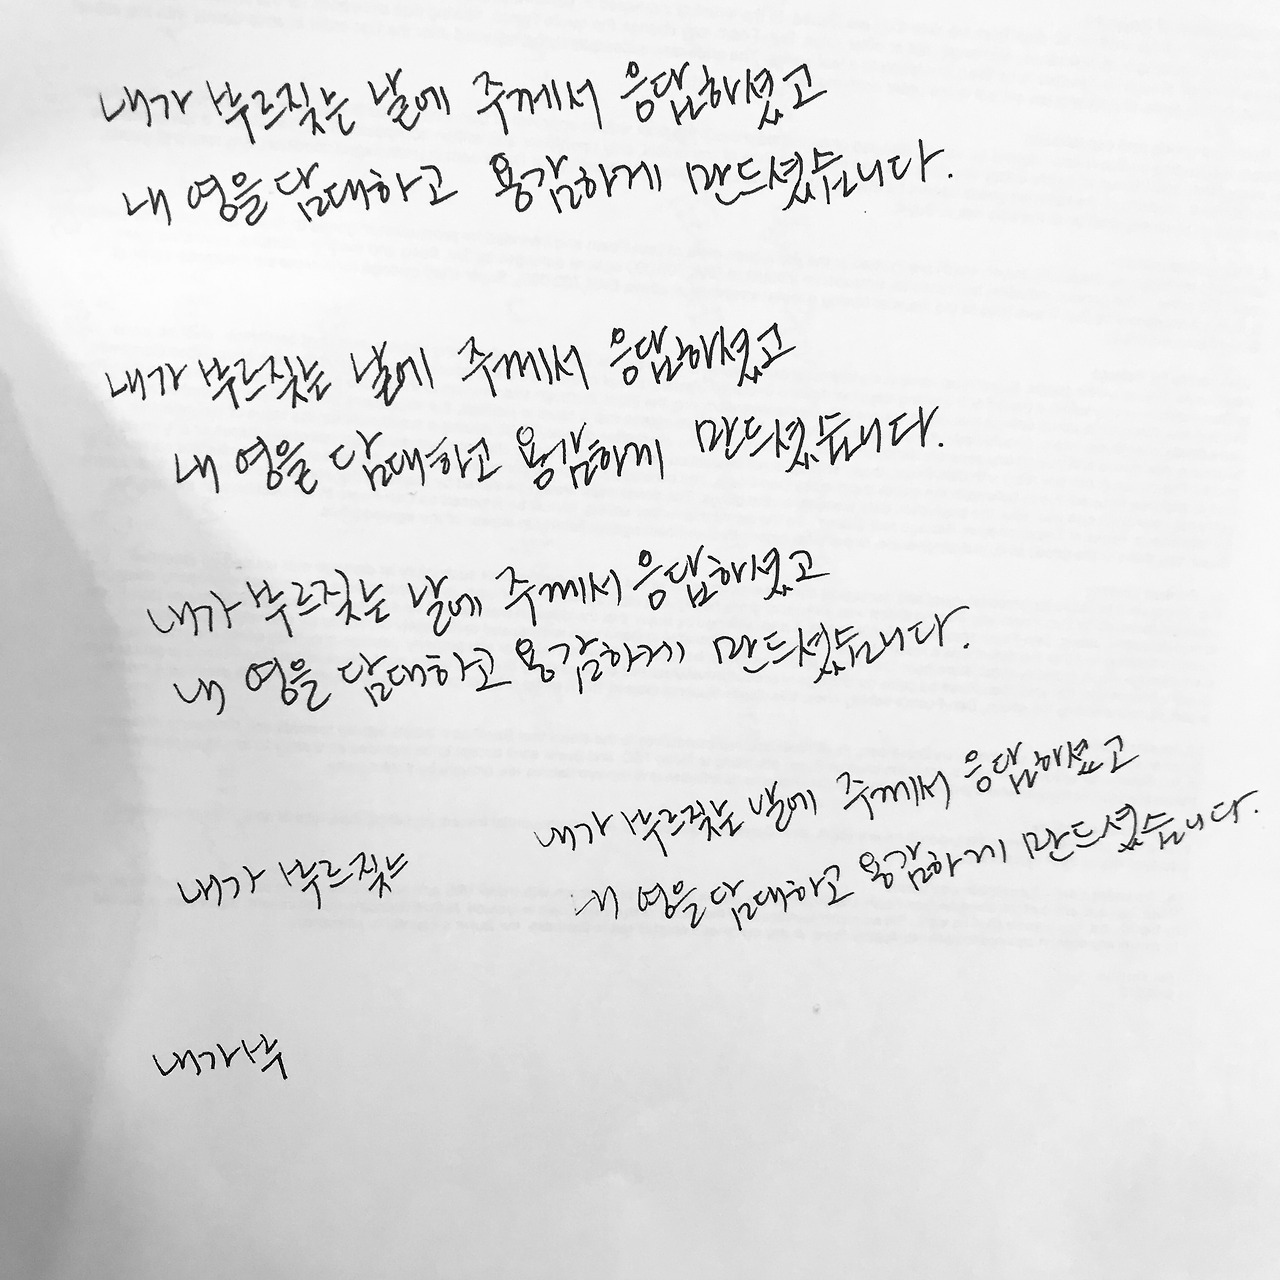 내가 부르짖는 날에 주께서 응답하셨고
내 영을 담대하고 용감하게 만드셨습니다.
내가 부르짖는 날에 주께서 응답하셨고
내 영을 담대하고 용감하게 만드셨습니다.
내가 부르짖는 날에 주께서 응답하셨고
내 영을 담대하고 용감하게 만드셨습니다.
내가 부르짖는 날에 주께서 응답하셨고
내 영을 담대하고 용감하게 만드셨습니다.
내가 부르짖는
내가 부